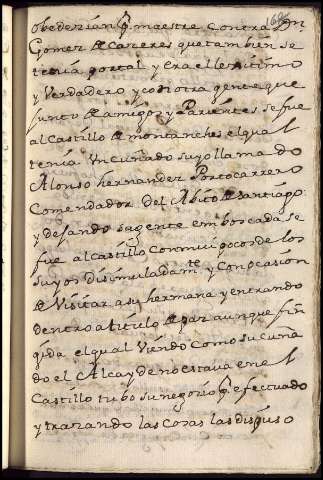 obedezian pr maestre contra Dn
Gomez de Carzeres que tambien se
tenia portal y era el lexitimo
y Verdadero y con otra gente que
junto de amigos y Parientes se fue
al Castillo de montanches el qual
tenia Un cuñado suyo llamado
Alonso hernandez Portocarrero
Comendador del Abito de Santiago
y dejando su gente emboscada se
fue al castillo con mui pocos de los
suyos disimuladamte y con ocasion
de Visitar a su hermana y entrando
dentro a titulo de paz aunque fin
gida el qual Viendo como su cuña
do el Alcayde no estava en el
Castillo tubo su negozio pr efectuado
y trazando las cosas las dispuso